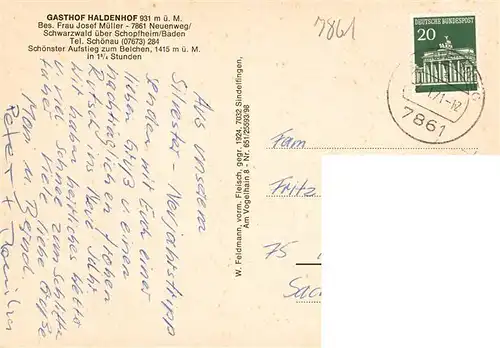 GASTHOF HALDENHOF 931 m ü. M.
Bes. Frau Josef Müller - 7861 Neuenweg/
Schwarzwald über Schopfheim/Baden
Tel. Schönau (07673) 284
Schönster Aufstieg zum Belchen, 1415 m ü. M.
in 1¾ Stunden
7861
DEUTSCHE BUNDESPOST
20
71-12
7861
Aus unserem
Silvester-Neujahrstrip
senden wir Euch einen
lieben Gruß u. einen
nachträglichen frohen
Rutsch ins Neue Jahr.
Wir haben herrliches Wetter
u. viel Schnee zum Schlitten
fahren. Viele liebe Grüße
Moni u. Bernd.
Peter +
W. Feldmann, vorm. Fleisch, gegr. 1924, 7032 Sindelfingen,
Am Vogelhain 8 - Nr. 651/25593/98
Fam
Fritz
75
Sac